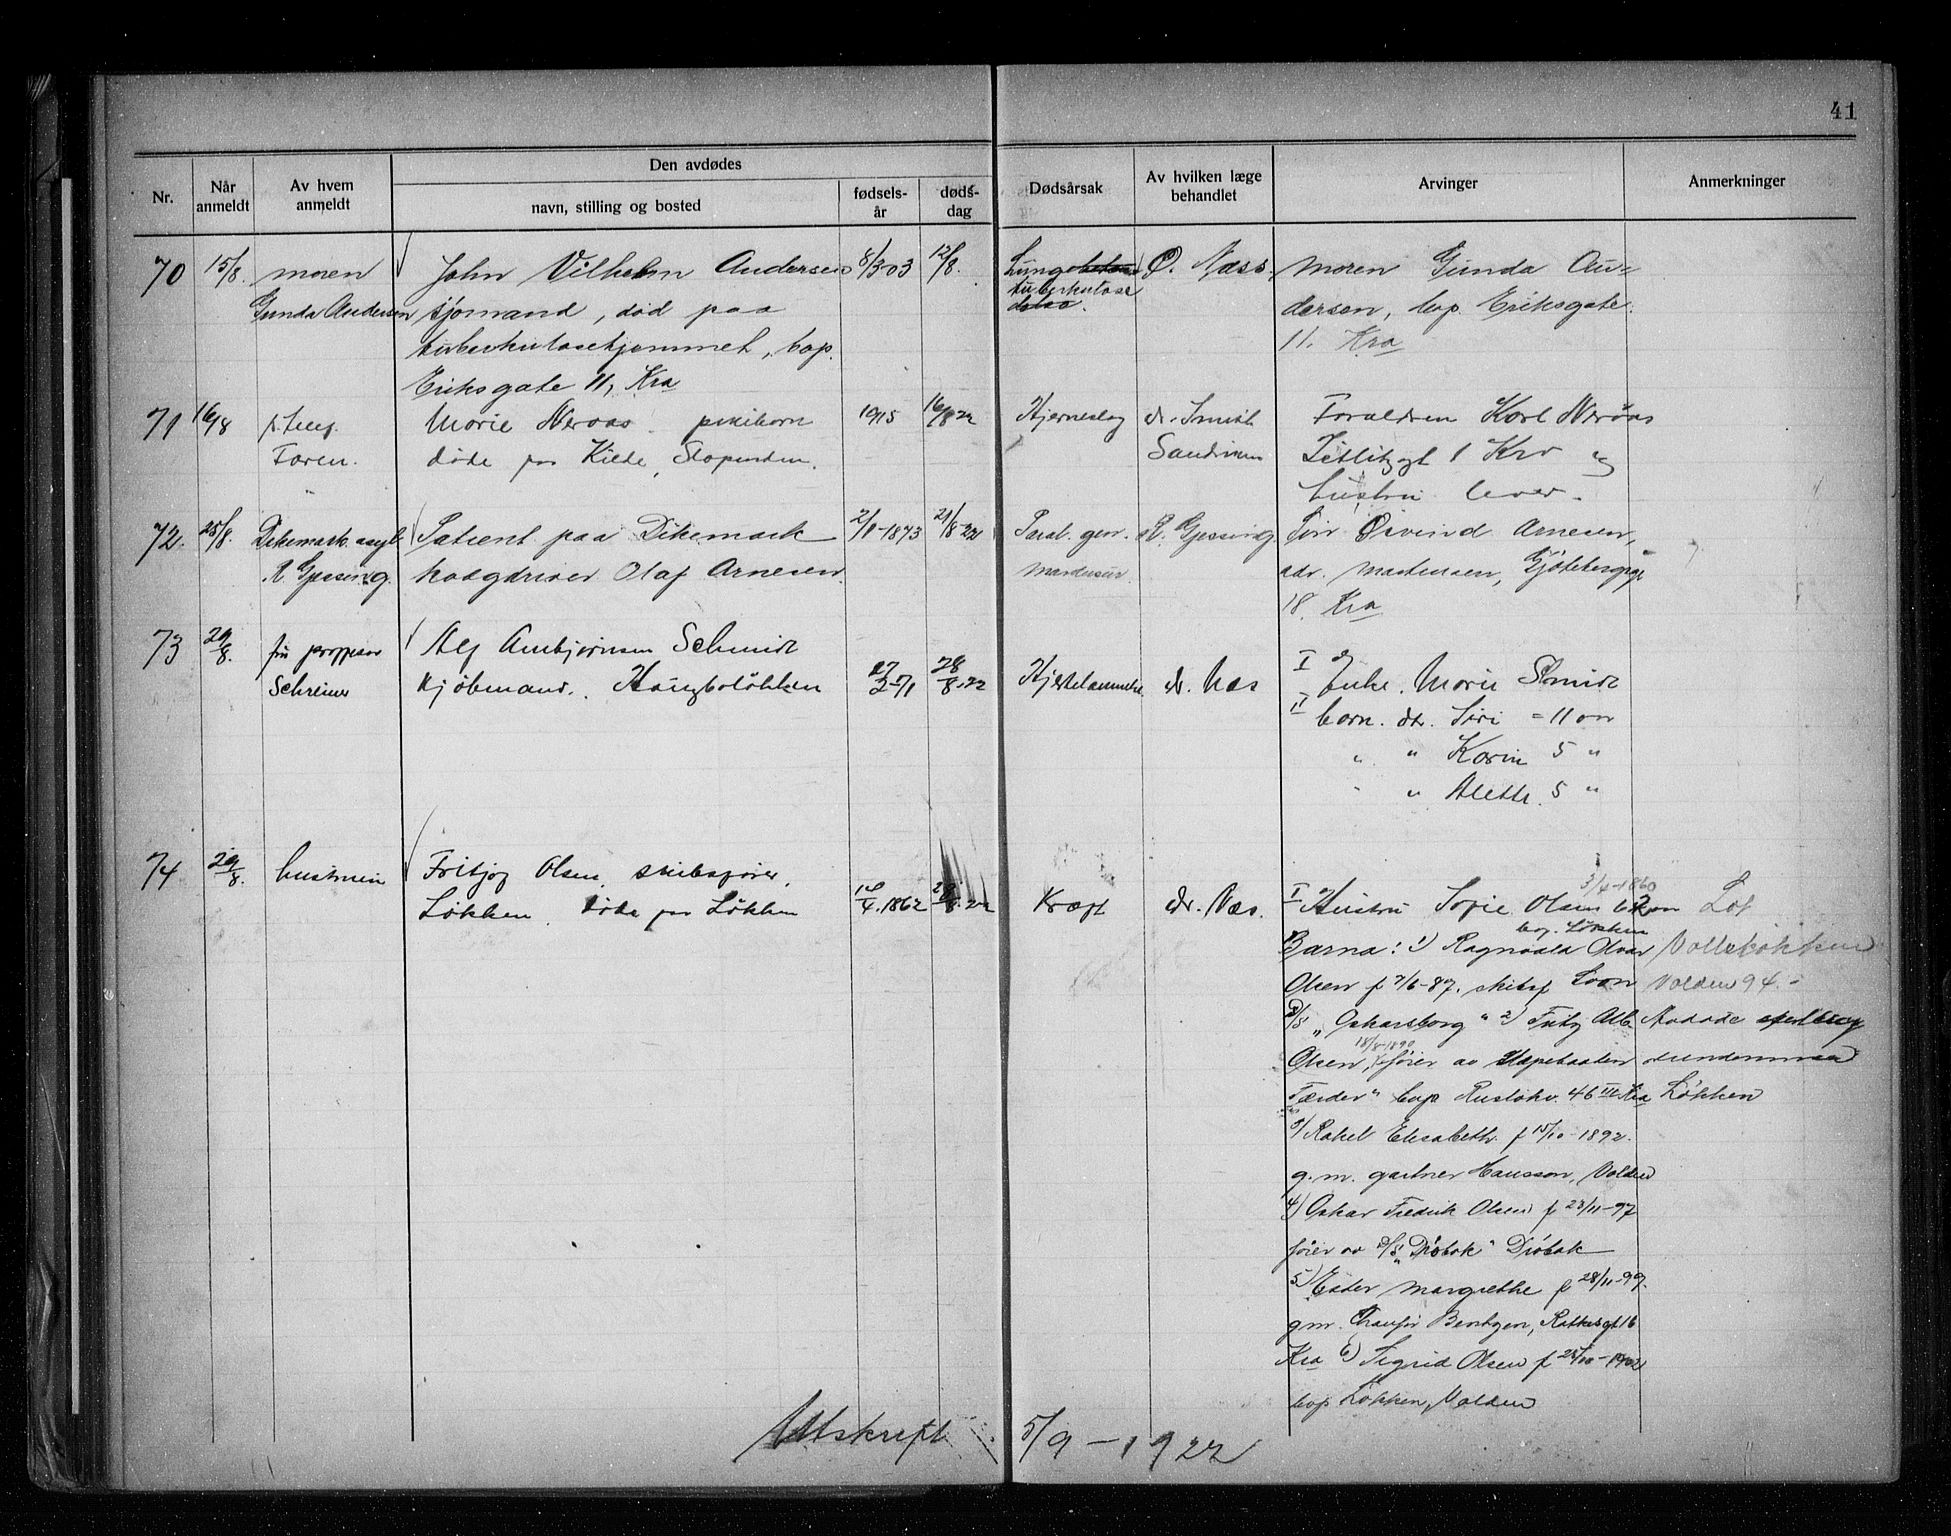 41
Nr.
Når anmeldt
Av hvem anmeldt
Den avdødes
navn, stilling og bosted
fødsels-år
døds-dag
Dødsårsak
Av hvilken læge behandlet
Arvinger
Anmerkninger
70 15/8. moren John Vilhelm Andersen 8/3-03 12/8. Lunge Ø. Næss. Moren Gunda An-
Gunda Andersen sjømand, død paa tuberkulose dersen, bop. Eriksgate
tuberkulosehjemmet, bop. 11. Kra
Eriksgate 11, Kra
71 16/8 p. telef. Marie Nerøas pikebarn 1915 16/8 22 Hjerneslag dr. Smith Forældren Karl Nerøas
Faren. døde paa Kilde, Slependen. Sandviken 1 Kra og
hustru lever.
72. 25/8. Dikemark asyl Patient paa Dikemark 2/1-1873 21/8-22 Paral. gen. R. Gjessing. Søn Øivind Arnesen,
R Gjessing. Olaf Arnesen. adr. Martensen, Gøteborggt
18. Kra
73 29/8. fru professor Alf Ambjørnsen Schmidt
Schreiner kjøbmand. Haugboløkken 27/2-71 28/8-22 Hjertelammelse dr. Næs I Enke. Marie Schmidt
II barn. dtr. Siri = 11 aar
" " Karin 5 "
" " Aleth. 5 "
74 29/8. hustruen Fritjof Olsen, skibsfører,
Løkken. døde paa Løkken 14/4.1862 28/8.22 Kræft dr. Næs. I Hustru Sofie Olsen 3/4-1860
bop. Løkken
Barna: 1) Ragnvald Olsen f 7/6-87. skibsf
D/S "Oskarsborg" 2) Fritz Alb.
Olsen, 18/8-1890 fører av slæpebaaten
"Færder" bop Ruseløkv. 46 III Kra Løkken
3) Rakel Elisabeth f 15/10-1892.
g.m. gartner Hansson, Volden
4) Oskar Fredrik Olsen f 23/11-97
fører av D/S "Drøbak" Drøbak
5) Ester Margrethe f 28/11-99.
gm. Chauffør Bentzen, Ratkesgt 16
Kra 6) Sigrid Olsen f 25/10-1902
bop Løkken, Volden
Volden 94.
Utskrift 5/9-1922